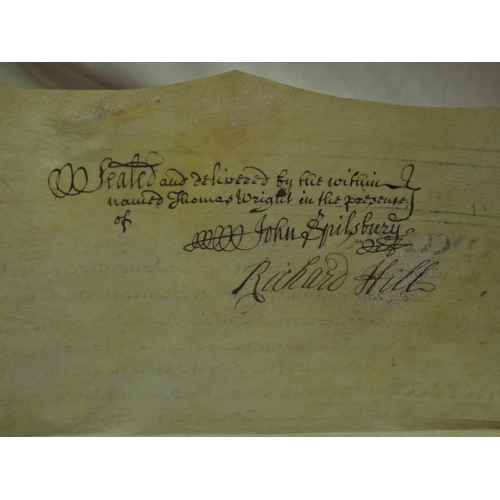 Sealed and delivered by the within
named Thomas Wright in the presence
of
John Spilsbury
Richard Hill